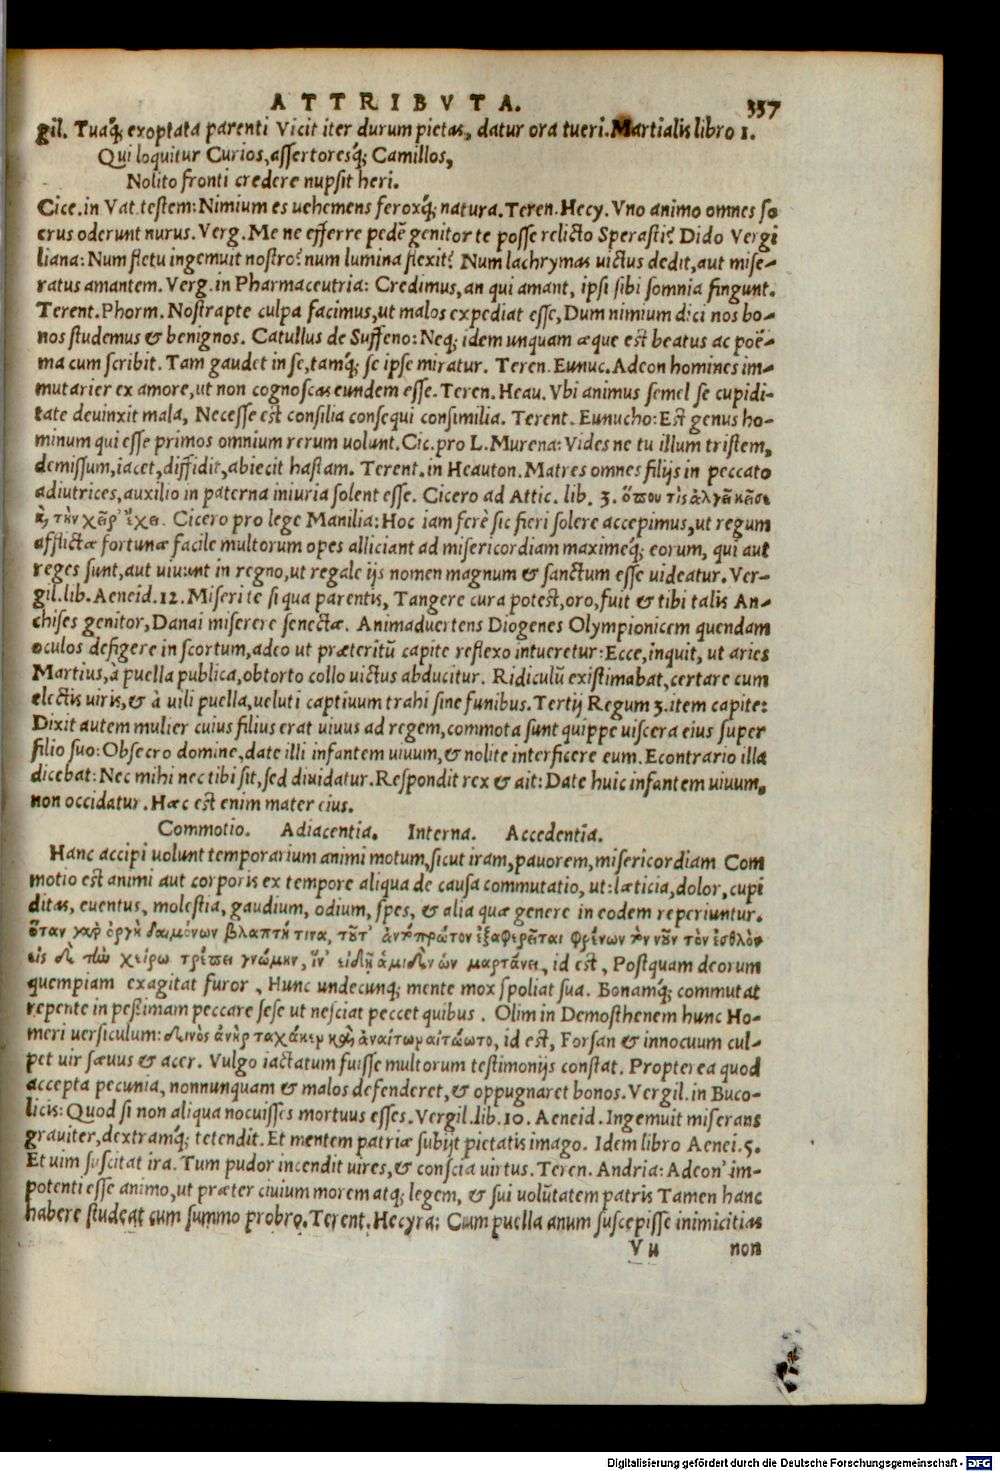 ATTRIBVTA. 337
gil. Tuaq; exoptata parenti Vicit iter durum pietas, datur ora tueri. Martialis libro 1.
Qui loquitur Curios, assertoresq; Camillos,
Nolito fronti credere nupsit heri.
Cice. in Vat. testem: Nimium es uehemens feroxq; natura. Teren. Hecy. Vno animo omnes so
crus oderunt nurus. Verg. Me ne efferre pedē genitor te posse relicto Sperasti? Dido Vergi
liana: Num fletu ingemuit nostro? num lumina flexit? Num lachrymas uictus dedit, aut mise-
ratus amantem. Verg. in Pharmaceutria: Credimus, an qui amant, ipsi sibi somnia fingunt.
Terent. Phorm. Nostrapte culpa facimus, ut malos expediat esse, Dum nimium dici nos bo-
nos studemus & benignos. Catullus de Suffeno: Neq; idem unquam æque est beatus ac poë-
ma cum scribit. Tam gaudet in se, tamq; se ipse miratur. Teren. Eunuc. Adeon homines im-
mutarier ex amore, ut non cognoscas eundem esse. Teren. Heau. Vbi animus semel se cupidi-
tate deuinxit mala, Necesse est consilia consequi consimilia. Terent. Eunucho: Est genus ho-
minum qui esse primos omnium rerum uolunt. Cic. pro L. Murena: Vides ne tu illum tristem,
demissum, iacet, diffidit, abiecit hastam. Terent. in Heauton. Matres omnes filijs in peccato
adiutrices, auxilio in paterna iniuria solent esse. Cicero ad Attic. lib. 3. ὅπου τὶς ἀλγεῖ κεῖσε
κỳ τὴν χεῖρ' ἔχει. Cicero pro lege Manilia: Hoc iam ferè sic fieri solere accepimus, ut regum
afflictæ fortunæ facile multorum opes alliciant ad misericordiam maximeq; eorum, qui aut
reges sunt, aut uiuunt in regno, ut regale ijs nomen magnum & sanctum esse uideatur. Ver-
gil. lib. Aeneid. 12. Miseri te si qua parentis, Tangere cura potest, oro, fuit & tibi talis An-
chises genitor, Danai miserere senectæ. Animaduertens Diogenes Olympionicem quendam
oculos defigere in scortum, adeo ut præteritū capite reflexo intueretur: Ecce, inquit, ut aries
Martius, à puella publica, obtorto collo uictus abducitur. Ridiculū existimabat, certare cum
electis uiris, & à uili puella, ueluti captiuum trahi sine funibus. Tertij Regum 3. item capite:
Dixit autem mulier cuius filius erat uiuus ad regem, commota sunt quippe uiscera eius super
filio suo: Obsecro domine, date illi infantem uiuum, & nolite interficere eum. Econtrario illa
dicebat: Nec mihi nec tibi sit, sed diuidatur. Respondit rex & ait: Date huic infantem uiuum,
non occidatur. Hæc est enim mater eius.
Commotio. Adiacentia. Interna. Accedentia.
Hanc accipi uolunt temporarium animi motum, sicut iram, pauorem, misericordiam Com
motio est animi aut corporis ex tempore aliqua de causa commutatio, ut: læticia, dolor, cupi
ditas, euentus, molestia, gaudium, odium, spes, & alia quæ genere in eodem reperiuntur.
ὅταν γαρ ὀργὴ δαιμόνων βλαπτῃ τινα, τοῦτ' πρῶτον ἐξαφερεῖται φρένων τὸν νοῦν τὸν ἐσθλὸν
εἰς χείρω τρέπει γνώμην, ἵν' εἰδῇ ὧν μαρτάνει, id est, Postquam deorum
quempiam exagitat furor, Hunc undecunq; mente mox spoliat sua. Bonamq; commutat
repente in pessimam peccare sese ut nesciat peccet quibus. Olim in Demosthenem hunc Ho-
meri uersiculum: δεινὸς ἀνὴρ ταχάκεν κỳ ἀναίτιον αἰτιῶτο, id est, Forsan & innocuum cul-
pet uir sæuus & acer. Vulgo iactatum fuisse multorum testimonijs constat. Propterea quod
accepta pecunia, nonnunquam & malos defenderet, & oppugnaret bonos. Vergil. in Buco-
licis: Quod si non aliqua nocuisses mortuus esses. Vergil. lib. 10. Aeneid. Ingemuit miserans
grauiter, dextramq; tetendit. Et mentem patriæ subijt pietatis imago. Idem libro Aenei. 5.
Et uim suscitat ira. Tum pudor incendit uires, & conscia uirtus. Teren. Andria: Adeon' im-
potenti esse animo, ut præter ciuium morem atq; legem, & sui uolūtatem patris Tamen hanc
habere studeat cum summo probro. Terent. Hecyra: Cum puella anum suscepisse inimicitias
V u non
Digitalisierung gefördert durch die Deutsche Forschungsgemeinschaft - DFG